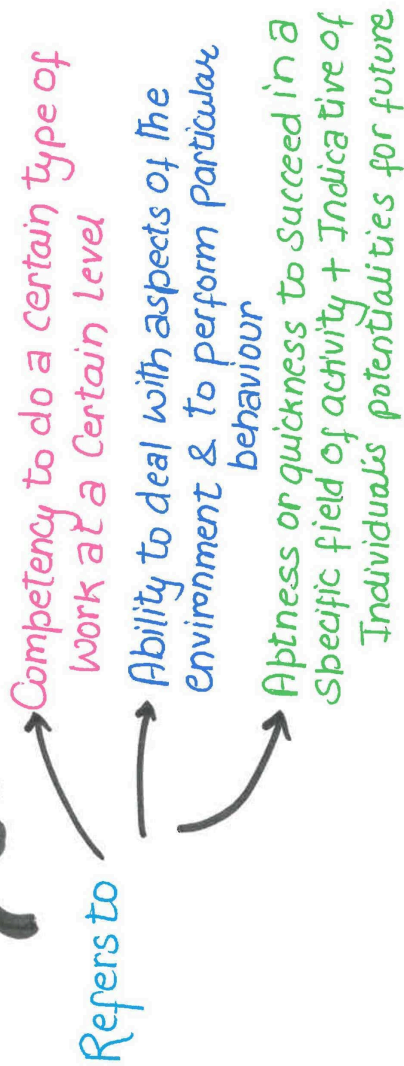 Refers to
Competency to do a certain type of
Work at a Certain Level
Ability to deal with aspects of the
environment & to perform particular
behaviour
Aptness or quickness to succeed in a
specific field of activity + Indicative of
Individual's potentialities for future